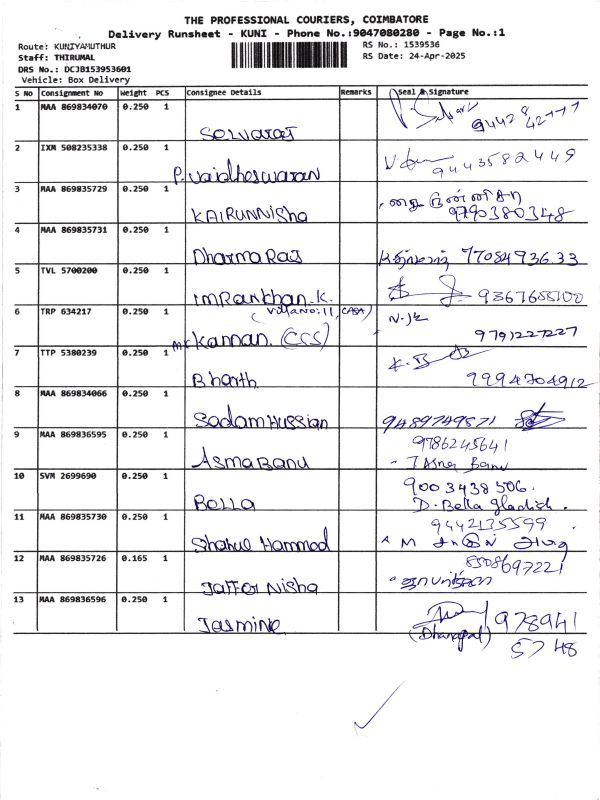 THE PROFESSIONAL COURIERS, COIMBATORE
Delivery Runsheet - KUNI - Phone No.:9047080280 - Page No.:1
Route: KUNIYAMUTHUR
RS No.: 1539536
Staff: THIRUMAL
RS Date: 24-Apr-2025
DRS No.: DCJB153953601
Vehicle: Box Delivery
S No Consignment No Weight PCS Consignee Details Remarks Seal & Signature
1 MAA 869834070 0.250 1
Selvaraj
94428 42777
2 IXM 508235338 0.250 1
P. Vaidheswaran
9443582449
3 MAA 869835729 0.250 1
KAIRUNNISha
9790380348
4 MAA 869835731 0.250 1
Dharma Raj 7708493633
5 TVL 5700200 0.250 1
IMRankhan.K. 9367655100
(Villa No:11, CASA)
6 TRP 634217 0.250 1
Mr Kannan. (CCS)
9791227227
7 TTP 5380239 0.250 1
Bharth
9994704912
8 MAA 869834066 0.250 1
Sadam Hussian 9489749871
9 MAA 869836595 0.250 1
9786245641
Asma Banu
10 SVM 2699690 0.250 1
9003438506.
Bella D. Bella
11 MAA 869835730 0.250 1
9442135599
Shahul Hammod
12 MAA 869835726 0.165 1
8508697221
Jaffer Nisha
13 MAA 869836596 0.250 1
Jasmine 978941
(Dhanapal)
5748